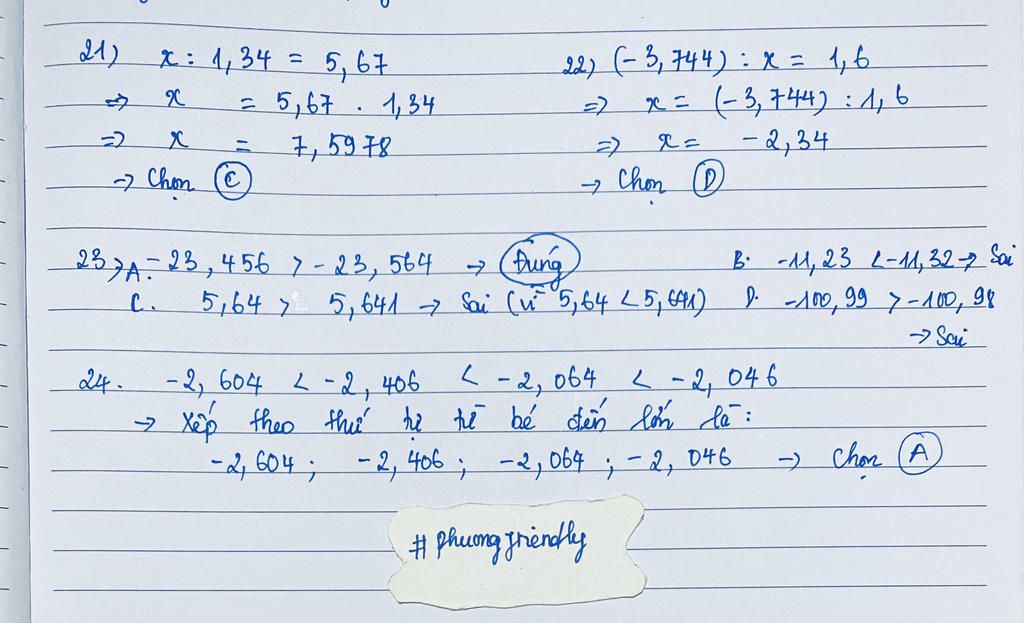 21) x : 1,34 = 5,67
⇒ x = 5,67 . 1,34
⇒ x = 7,5978
→ Chọn C
22) (-3,744) : x = 1,6
⇒ x = (-3,744) : 1,6
⇒ x = -2,34
→ Chọn D
23) A. -23,456 > -23,564 → Đúng B. -11,23 < -11,32 → Sai
C. 5,64 > 5,641 → Sai (vì 5,64 < 5,641) D. -100,99 > -100,98
→ Sai
24. -2,604 < -2,406 < -2,064 < -2,046
→ Xếp theo thứ tự từ bé đến lớn là:
-2,604 ; -2,406 ; -2,064 ; -2,046 → Chọn A
#phuongfriendly